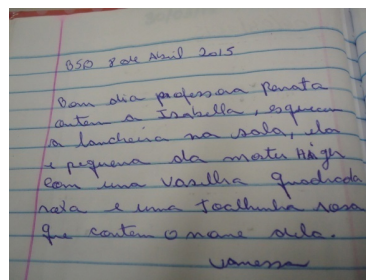 BSB 8 de Abril 2015
Bom dia professora Renata
ontem a Isabella, esqueceu
a lancheira na sala, ela
é pequena da monter High
com uma vasilha quadrada
roxa e uma toalhinha rosa
que contem o nome dela.
Vanessa